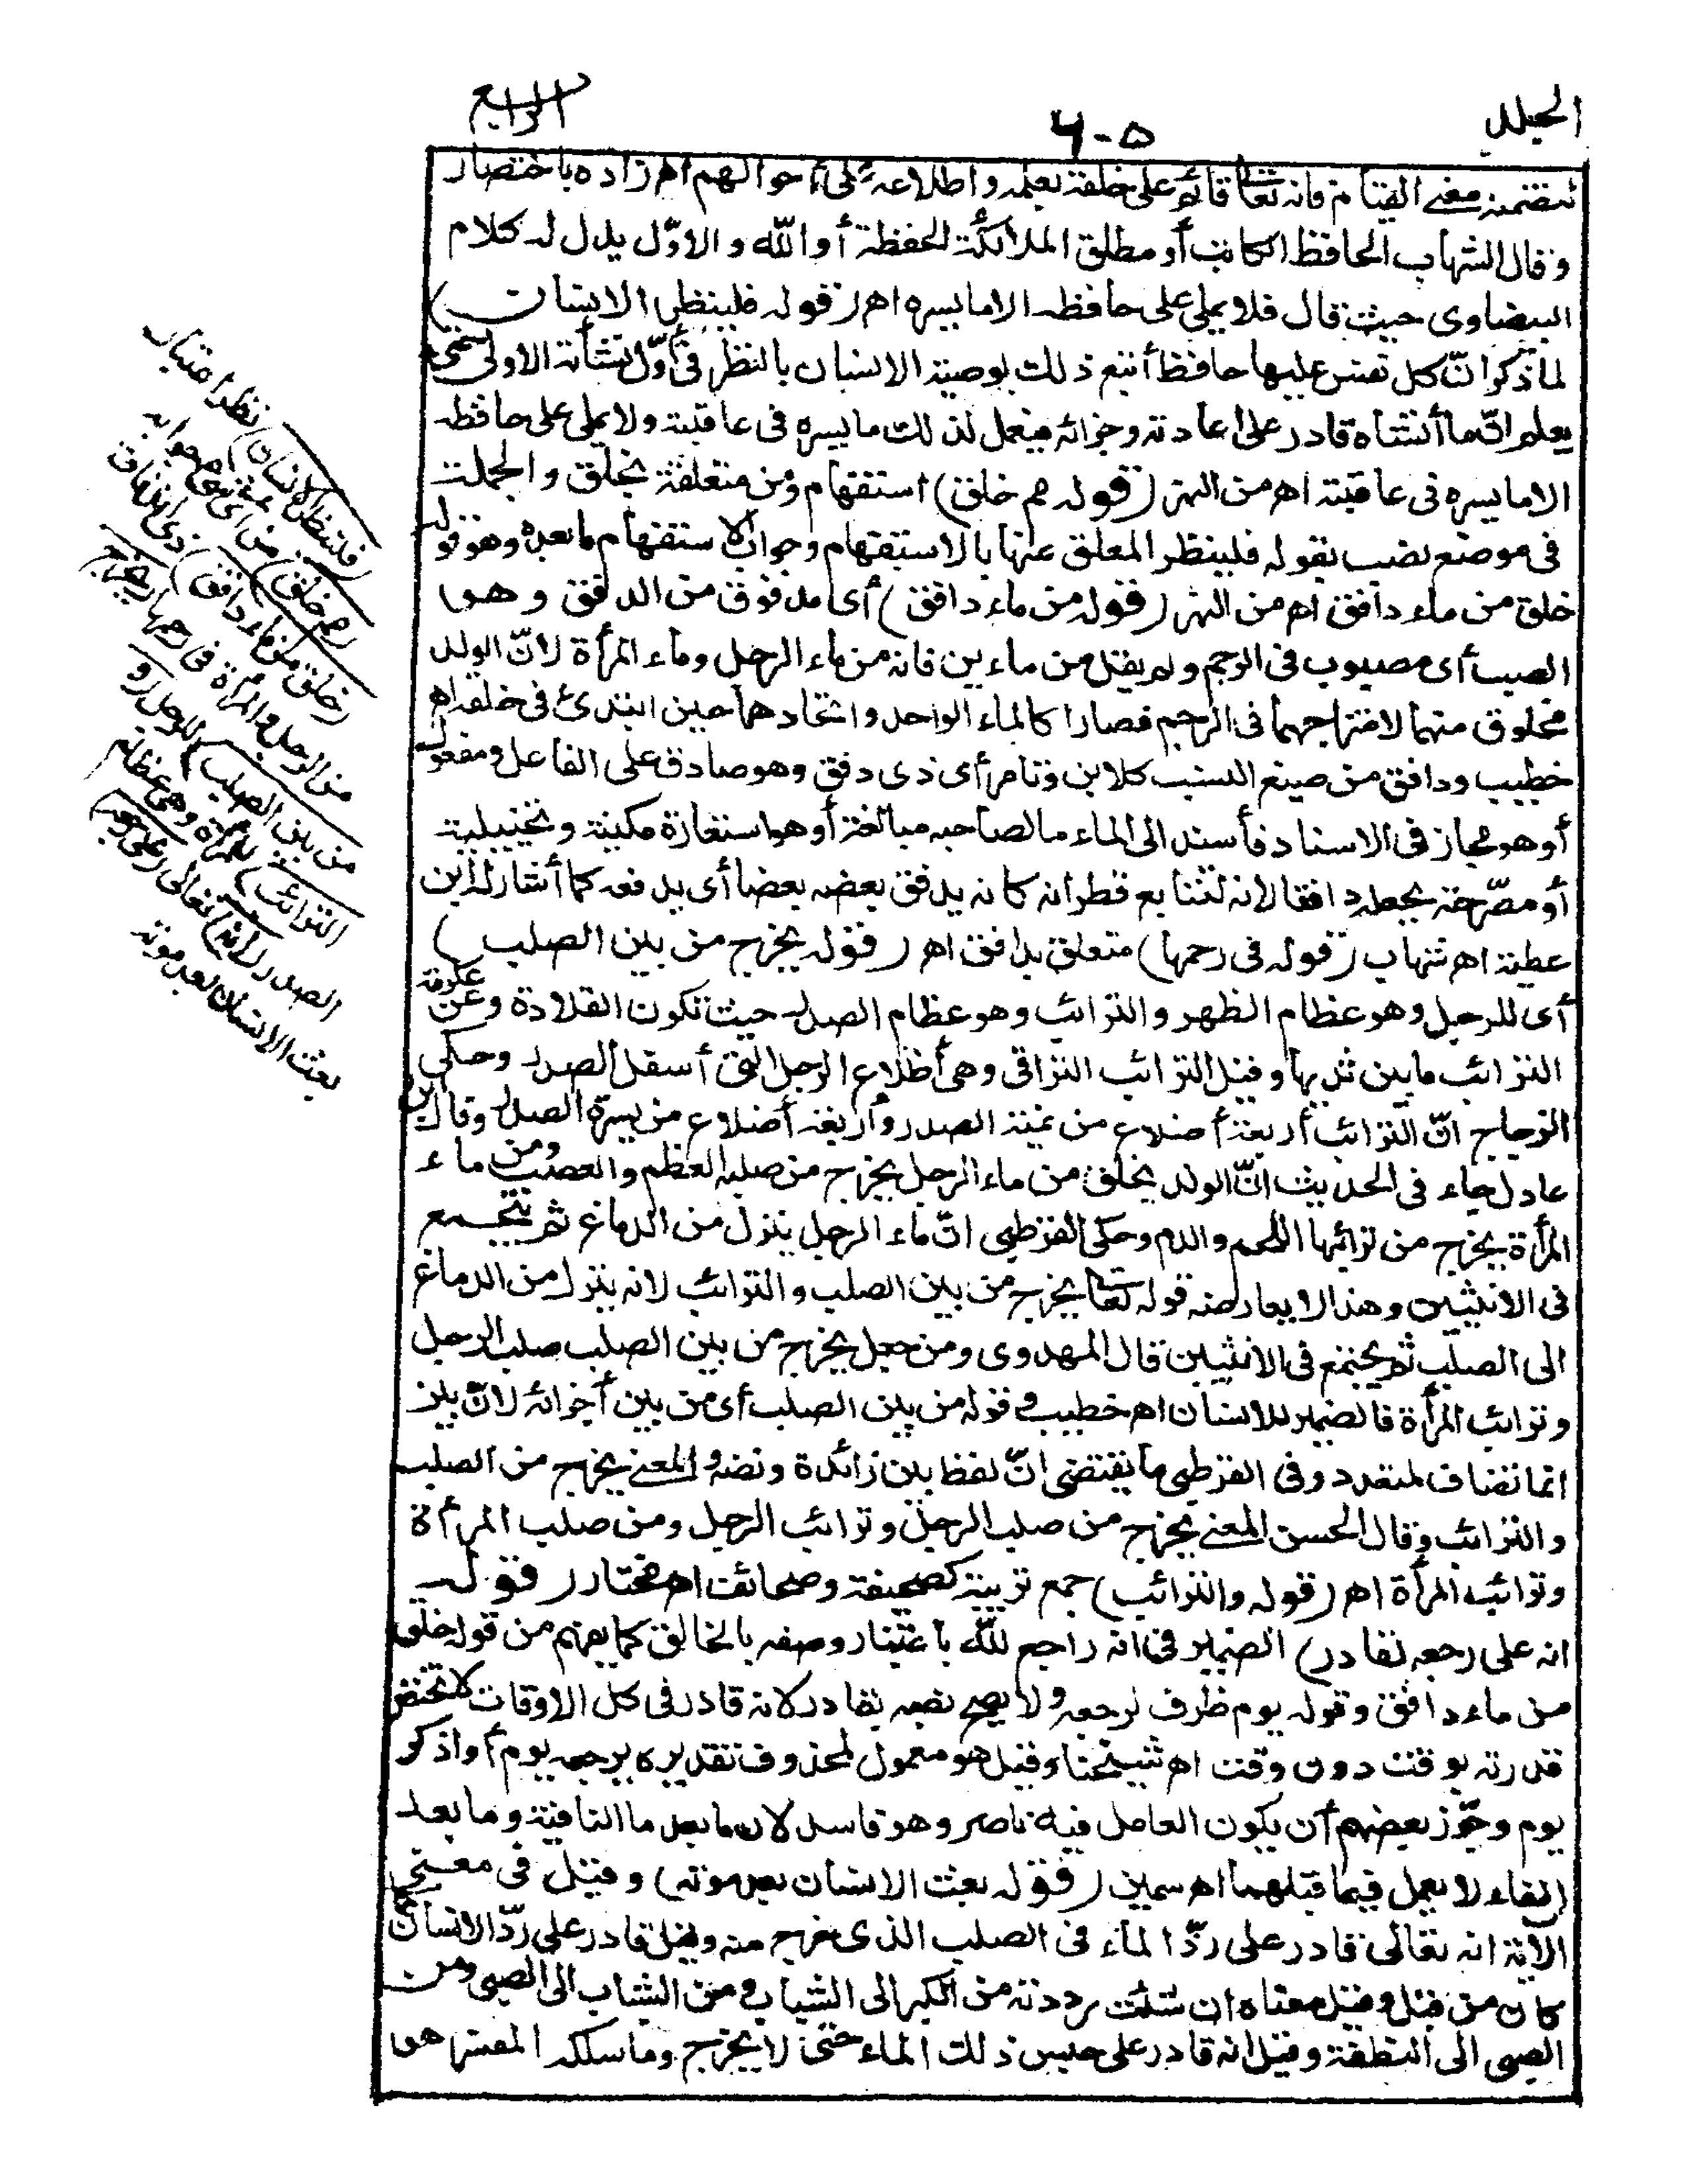 الجلد
٦٠٥
الرابع
تتضمنه معنى القيام فانه تعالى قائم على خلقه بعلمه واطلاعه على احوالهم اهـ زاده باختصار
وقال الشهاب الحافظ الكاتب أو مطلق الملائكة الحفظة أو الله والاوّل يدل له كلام
البيضاوى حيث قال فلا يملى على حافظه الا ما يسره اهـ (قوله فلينظر الانسان)
لما ذكر انّ كل نفس عليها حافظ أتبع ذلك بوصية الانسان بالنظر فى أوّل نشأته الاولى حتى
يعلم انّ ما أنشأه قادر على اعادته وجزائه فيعمل لذلك ما يسره فى عاقبته ولا يملى على حافظه
الا ما يسره فى عاقبته اهـ من النهر (قوله مم خلق) استفهام ومن متعلقة بخلق والجملة
فى موضع نصب بقوله فلينظر المعلق عنها بالاستفهام وجواب الاستفهام ما بعده وهو قوله
خلق من ماء دافق اهـ من النهر (قوله من ماء دافق) أى مدفوق من الدفق وهو
الصب أى مصبوب فى الرحم ولم يقل من ماءين فانه من ماء الرجل وماء المرأة لانّ الولد
مخلوق منهما لامتزاجهما فى الرحم فصارا كالماء الواحد واتحادهما حين ابتدئ فى خلقه اهـ
خطيب ودافق من صيغ النسب كلابن وتامر أى ذى دفق وهو صادق على الفاعل ومفعول
أو هو مجاز فى الاسناد فأسند الى الماء ما لصاحبه مبالغة أو هو استعارة مكنية وتخييلية
أو مصرّحة بجعله دافقا لانه لتتابع قطراته كانه يدفق بعضه بعضا أى يدفعه كما أشار له ابن
عطية اهـ شهاب (قوله فى رحمها) متعلق بدافق اهـ (قوله يخرج من بين الصلب)
أى للرجل وهو عظام الظهر والترائب وهو عظام الصدر حيث تكون القلادة وعن عكرمة
الترائب ما بين ثدييها وقيل الترائب التراقى وهى أضلاع الرجل التى أسفل الصدر وحكى
الزجاج انّ الترائب أربعة أضلاع من يمنة الصدر وأربعة أضلاع من يسرة الصدر وقال ابن
عادل جاء فى الحديث انّ الولد يخلق من ماء الرجل يخرج من صلبه العظم والعصب ومن ماء
المرأة يخرج من ترائبها اللحم والدم وحكى القرطبى انّ ماء الرجل ينزل من الدماغ ثم يتجمع
فى الانثيين وهذا لا يعارضه قوله تعالى يخرج من بين الصلب والترائب لانه ينزل من الدماغ
الى الصلب ثم يجتمع فى الانثيين قال المهدوى ومن جعل يخرج من بين الصلب صلب الرجل
وترائب المرأة فالضمير للانسان اهـ خطيب وقوله من بين الصلب أى من بين أجزائه لانّ بين
انما تضاف لمتعدد وفى القرطبى ما يقتضى انّ لفظ بين زائدة ونصه والمعنى يخرج من الصلب
والترائب وقال الحسن المعنى يخرج من صلب الرجل وترائب الرجل ومن صلب المرأة
وترائب المرأة اهـ (قوله والترائب) جمع تريبة كصحيفة وصحائف اهـ مختار (قوله
انه على رجعه لقادر) الضمير فى انه راجع لله باعتبار وصفه بالخالق كما يفهم من قوله خلق
من ماء دافق وقوله يوم ظرف لرجعه ولا يصح نصبه بقادر لانه قادر فى كل الاوقات لا تختص
قدرته بوقت دون وقت اهـ شيخنا وقيل هو معمول لمحذوف تقديره يرجعه يوم أو اذكر
يوم وجوّز بعضهم أن يكون العامل فيه ناصر وهو فاسد لان ما بعد ما النافية وما بعد
الفاء لا يعمل فيما قبلهما اهـ سمين (قوله بعث الانسان بعد موته) وقيل فى معنى
الآية انه تعالى قادر على ردّ الماء فى الصلب الذى خرج منه وقيل قادر على ردّ الانسان كما
كان من قبل وقيل معناه ان شئت رددته من الكبر الى الشباب ومن الشباب الى الصبى ومن
الصبى الى النطفة وقيل انه قادر على حبس ذلك الماء حتى لا يخرج وما سلكه المفسر هو
(فلينظر الانسان) نظر اعتبار
(مم خلق) من أى شئ جوابه
(خلق من ماء دافق) ذى اندفاق
من الرجل والمرأة فى رحمها (يخرج
من بين الصلب) للرجل (و
الترائب) للمرأة وهى عظام
الصدر (انه) تعالى (على رجعه)
بعث الانسان بعد موته